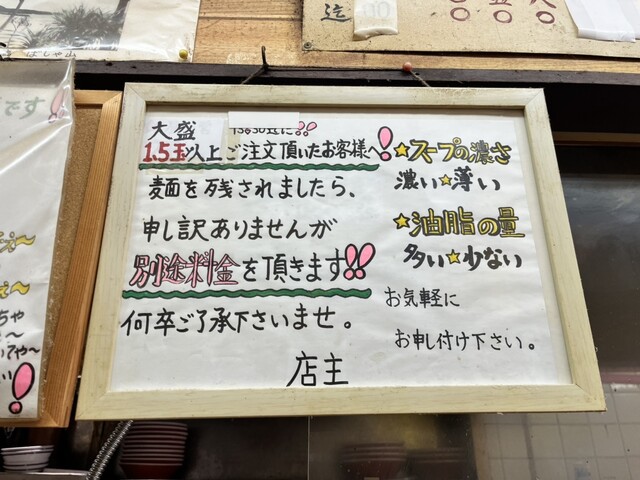 迄
〇〇〇
ばしゃ山
です!
大盛
1.5玉以上ご注文頂いたお客様へ!
麺を残されましたら、
申し訳ありませんが
別途料金を頂きます!!
何卒ご了承下さいませ。
店主
★スープの濃さ
濃い★薄い
★油脂の量
多い★少ない
お気軽に
お申し付け下さい。